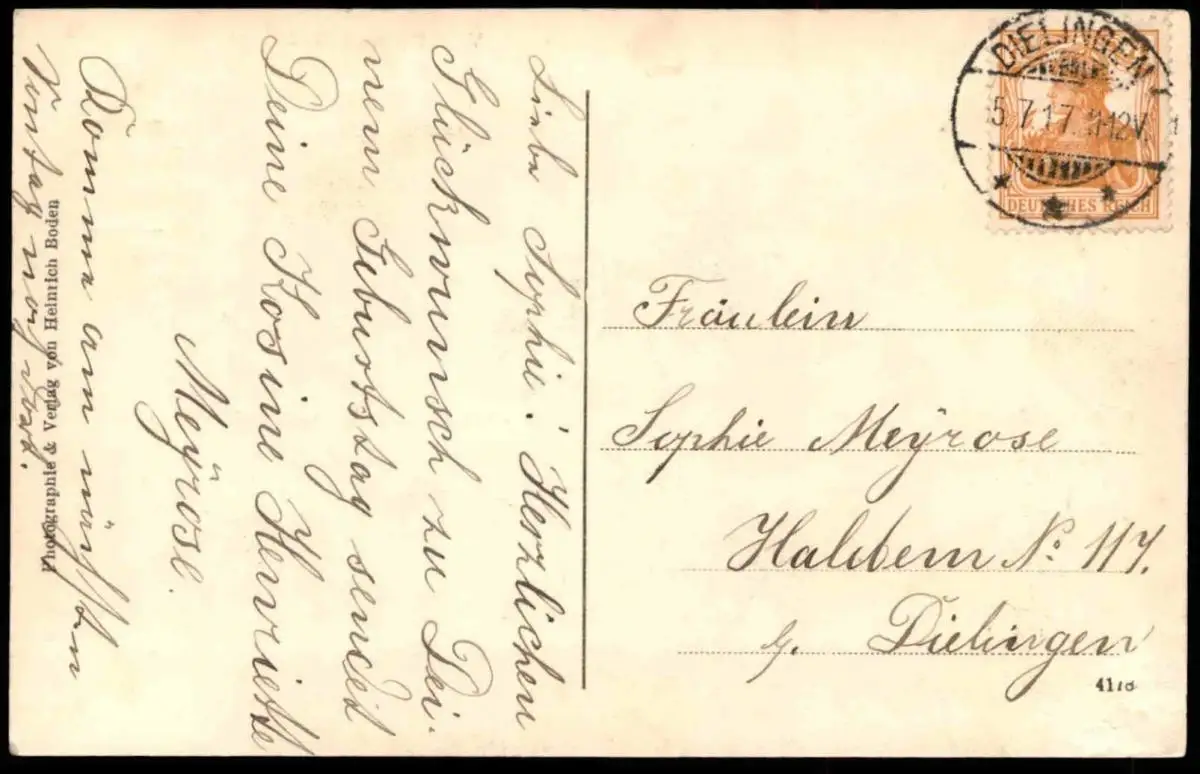 Liebe Sophie! Herzlichen
Glückwunsch zu Dei-
nem Geburtstag sendet
Deine Kosine Henriette
Meÿrose.
Komme am nächsten
Sontag noch
Photographie & Verlag von Heinrich Boden
DIELINGEN
5.7.17. 11-12V.
DEUTSCHES REICH
Fräulein
Sophie Meÿrose
Haldem No. 117.
b. Dielingen
4178